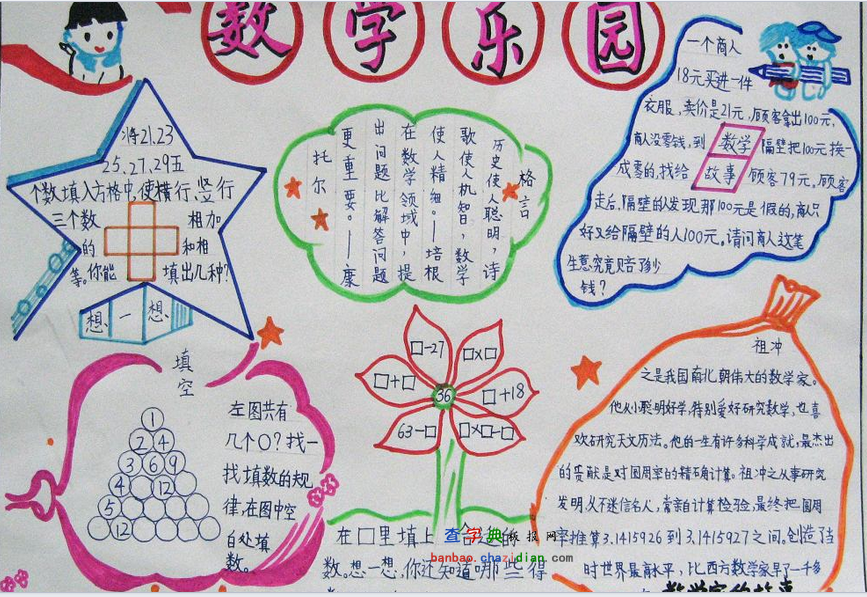 数学乐园
将21.23
25.27.29五
个数填入方格中,使横行、竖行
三个数 相加
的 和相
等。你能 填出几种?
想一想
格言
历史使人聪明,诗
歌使人机智,数学
使人精细。——培根
在数学领域中,提
出问题比解答问题
更重要。——康
托尔
一个商人
18元买进一件
衣服,卖价是21元,顾客拿出100元,
商人没零钱,到 数学 隔壁把100元换
成零的,找给 故事 顾客79元。顾客
走后,隔壁的人发现那100元是假的,商人只
好又给隔壁的人100元。请问商人这笔
生意究竟赔了多少
钱?
填空
1
2 4
3 6 9
4 12
5
12
左图共有
几个○?找一
找填数的规
律,在图中空
白处填
数。
□-27
□x□
□+□
36
□+18
63-□
□x□-□
在□里填上 合适的
数。想一想,你还知道哪些得
查字典 板报网
banbao.chazidian.com
祖冲
之是我国南北朝伟大的数学家。
他从小聪明好学,特别爱好研究数学,也喜
欢研究天文历法。他的一生有许多科学成就,最杰出
的贡献是对圆周率的精确计算。祖冲之从事研究
发明,从不迷信名人,常亲自计算检验,最终把圆周
率推算3.1415926到3.1415927之间,创造了当
时世界最高水平,比西方数学家早了一千多
数学家的故事